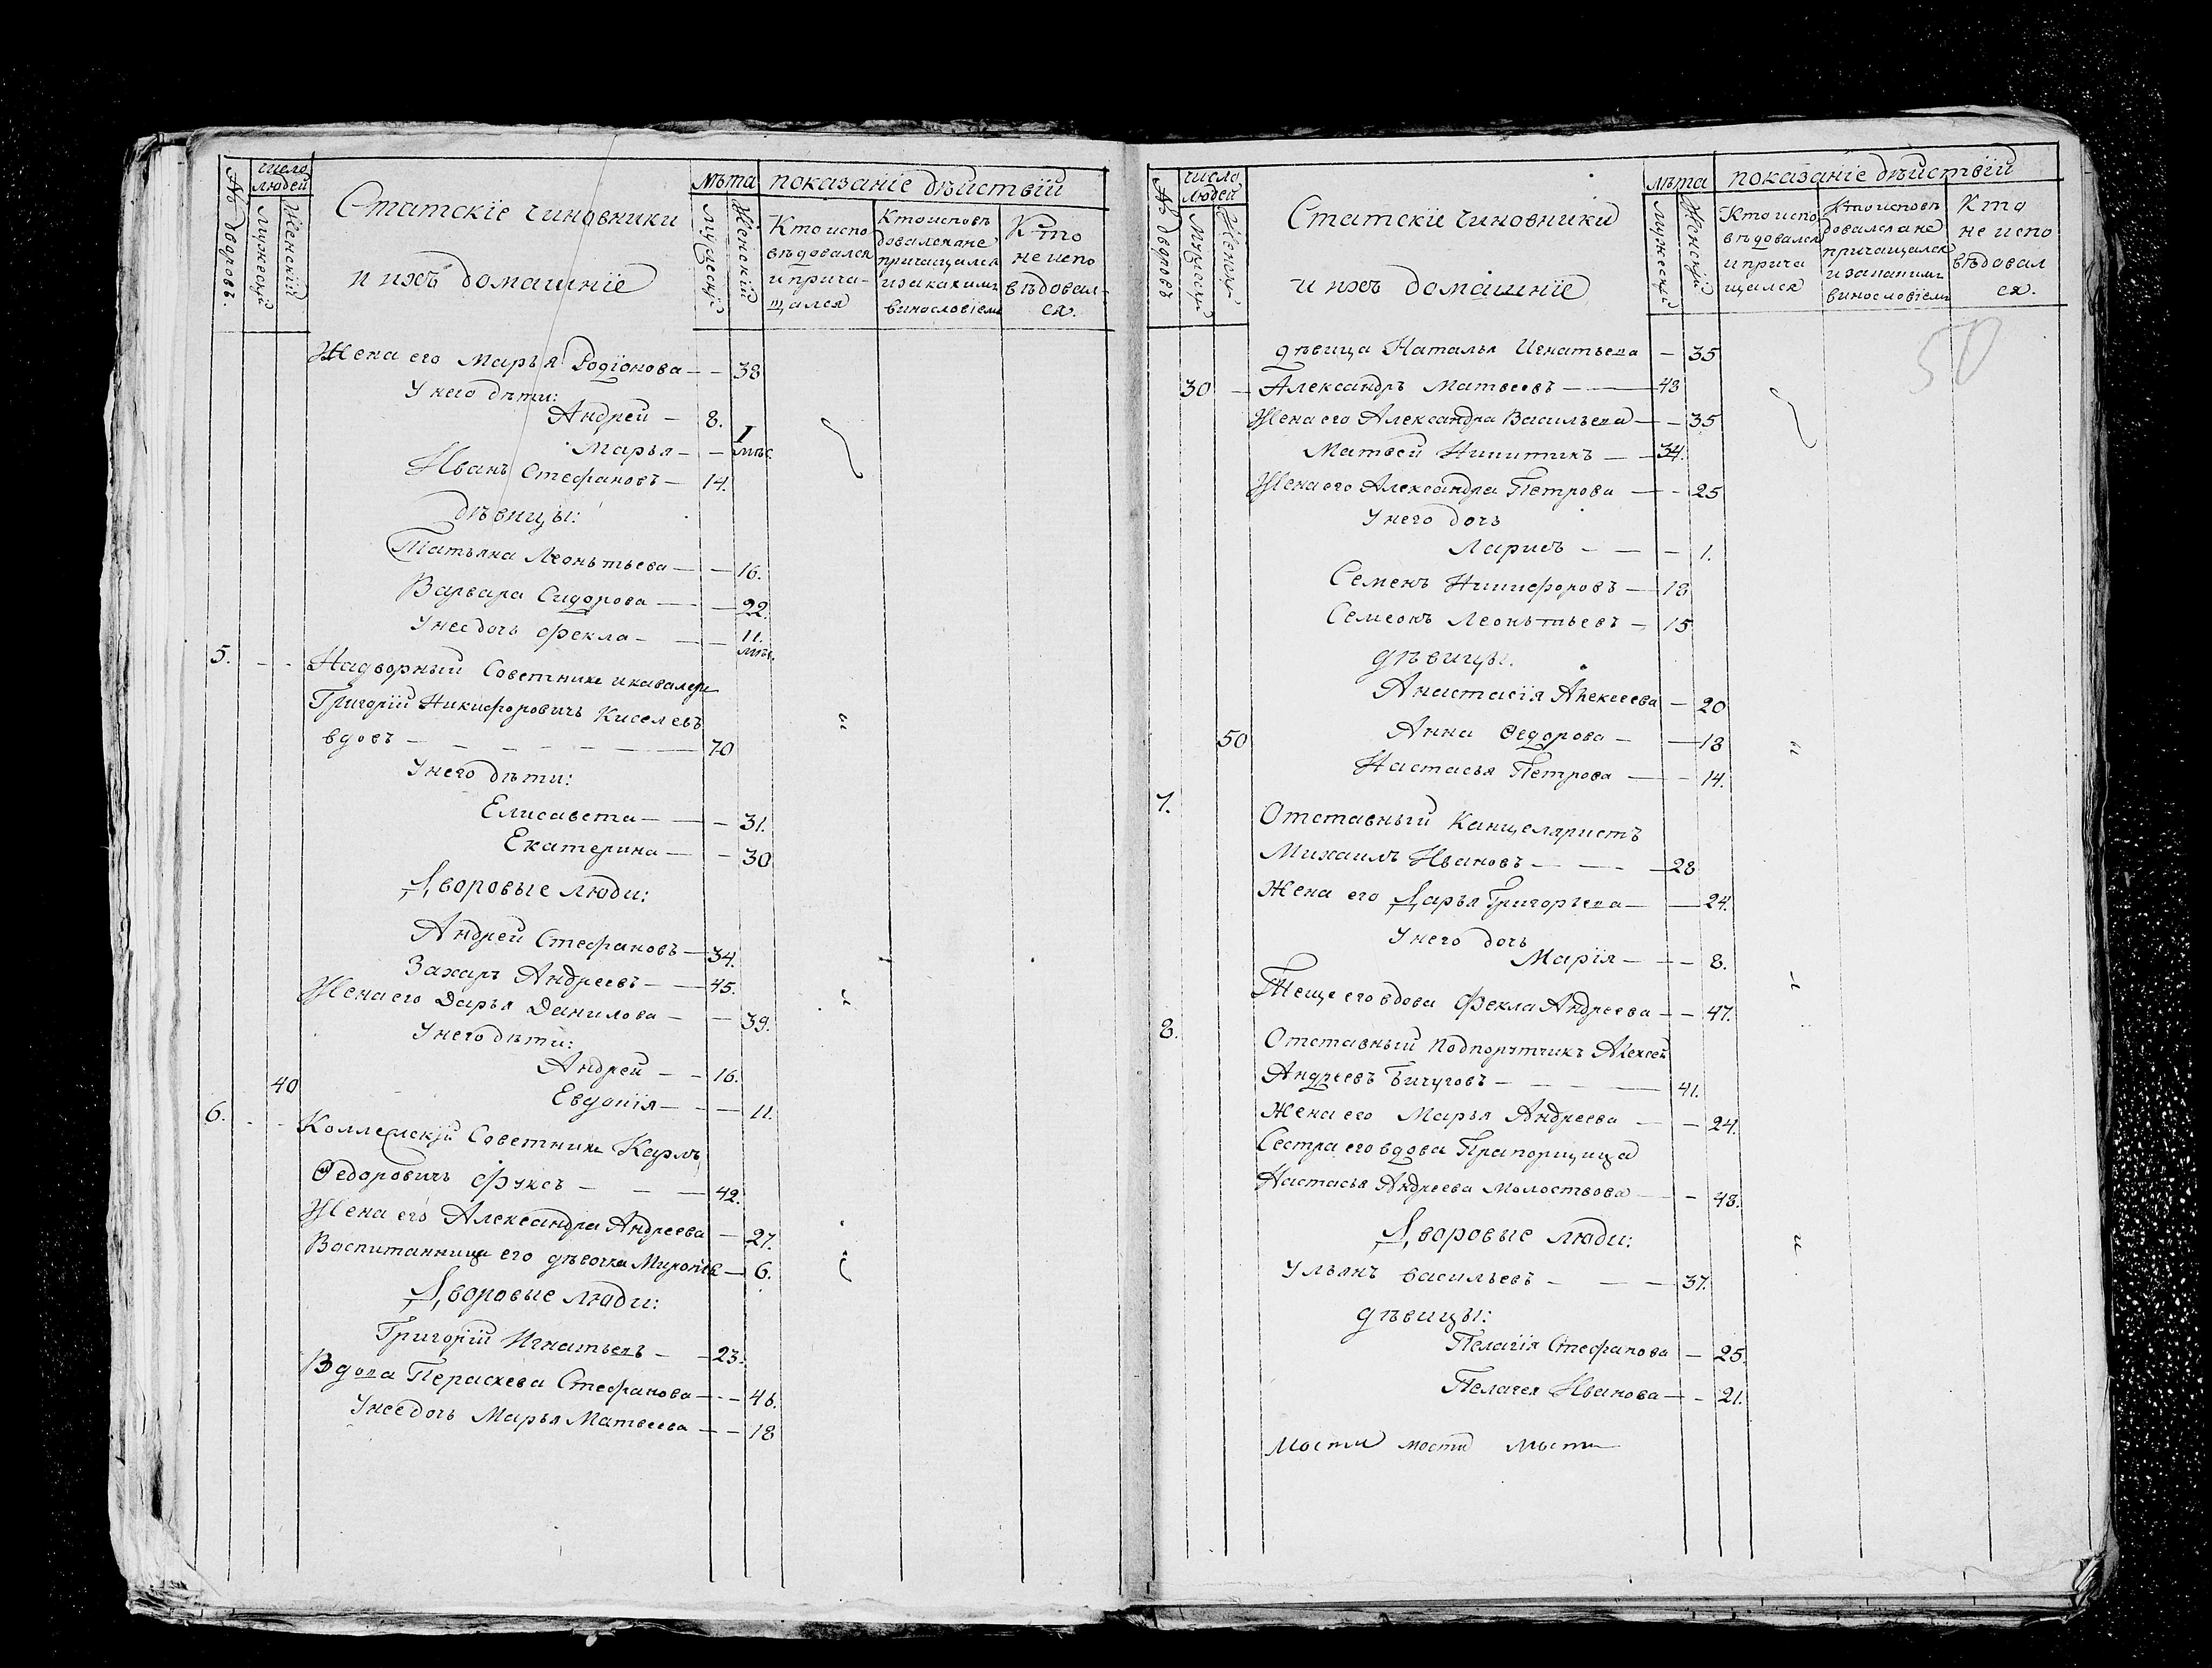 № дворовъ.
число людей
Мужескій
Женскій
Статскіе чиновники
и ихъ домашніе
лѣта
Мужескій
Женскій
показаніе дѣйствій
Кто испо
вѣдовался
и прича-
щался
Кто исповѣ
довался а не
причащался
и за какимъ
винословіемъ
Кто
не испо
вѣдовал-
ся.
Жена его Марья Родіонова - - 38
У него дѣти:
Андрей - 8.
Марья - - 1 мѣс.
Иванъ Стефановъ - 14.
дѣвицы:
Татьяна Леонтьева - - 16.
Варвара Сидорова - - 22.
У нее дочь Фекла - - 11. мѣс.
5. - - Надворный Советникъ и кавалеръ
Григорій Никифоровичъ Киселевъ
вдовъ - - - - - 70
У него дѣти:
Елисавета - - - 31.
Екатерина - - 30
Дворовые люди:
Андрей Стефановъ - 34.
Захаръ Андреевъ - - 45.
Жена его Дарья Данилова - - 39.
У него дѣти:
Андрей - - 16.
40 Евдокія - - - 11.
6. - - Коллежскій Советникъ Карлъ
Ѳедоровичъ Фуксъ - - - 42.
Жена его Александра Андреева - 27.
Воспитанница его дѣвочка - 6.
Дворовые люди:
Григорій Игнатьевъ - - 23.
Вдова Параскева Стефанова - - 46.
У нее дочь Марья Матвеева - - 18
№ дворовъ
число людей
Мужескій
Женскій
Статскіе чиновники
и ихъ домашніе
лѣта
Мужескій
Женскій
показаніе дѣйствій
Кто испо
вѣдовался
и прича
щался
Кто исповѣ
довался а не
причащался
и за какимъ
винословіемъ
Кто
не испо
вѣдовал
ся.
50
дѣвица Наталья Игнатьева - 35
30 - Александръ Матвеевъ - - 48
Жена его Александра Васильева - - 35
Матвей Никитинъ - - 34.
Жена его Александра Петрова - - 25
У него дочь
- - - 1.
Семенъ Никифоровъ - 18
Семеонъ Леонтьевъ - 15
дѣвицы.
Анастасія Алексеева - 20
50 Анна Ѳедорова - - 18
Настасья Петрова - - 14.
7. Отставный Канцеляристъ
Михаилъ Ивановъ - - - 28
Жена его Дарья Григорьева - - 24.
У него дочь
Марія - - - 8.
Теща его вдова Фекла Андреева - - 47.
8. Отставный Подпорутчикъ Алексей
Андреевъ Бичуговъ - - - - 41.
Жена его Марья Андреева - - 24.
Сестра его вдова Прапорщица
Настасья Андреева Молоствова - - 48.
Дворовые люди:
Ульянъ Васильевъ - - - 37.
дѣвицы:
Пелагія Стефанова - 25.
Пелагея Иванова - - 21.